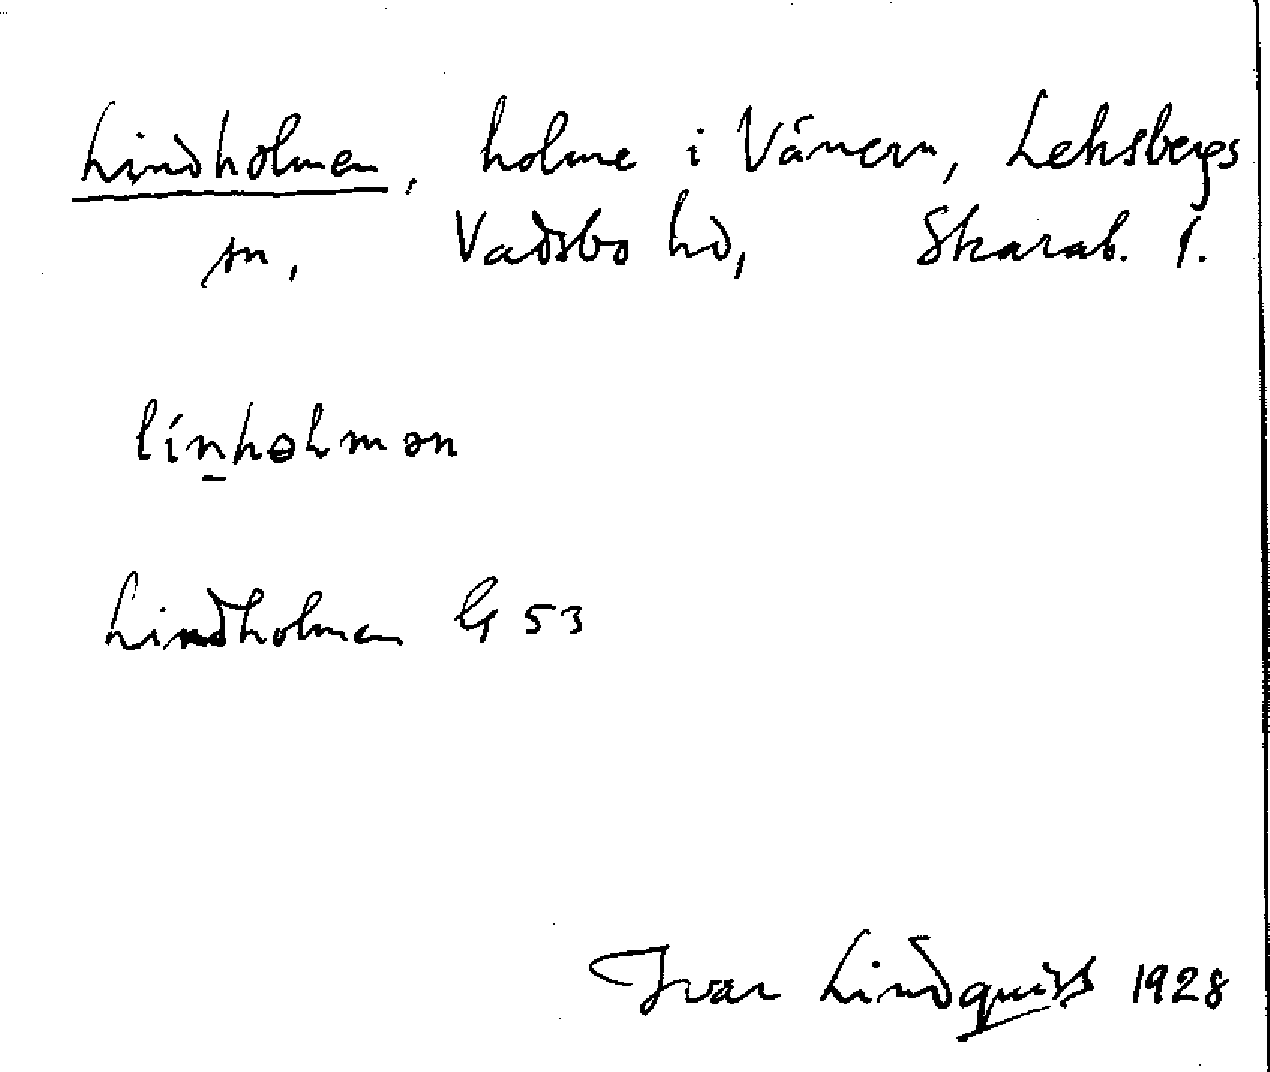 Lindholmen, holme i Vänern, Leksbergs
sn, Vadsbo hd, Skarab. l.
línhɵlmən
Lindholmen G 53
Ivar Lindquist 1928